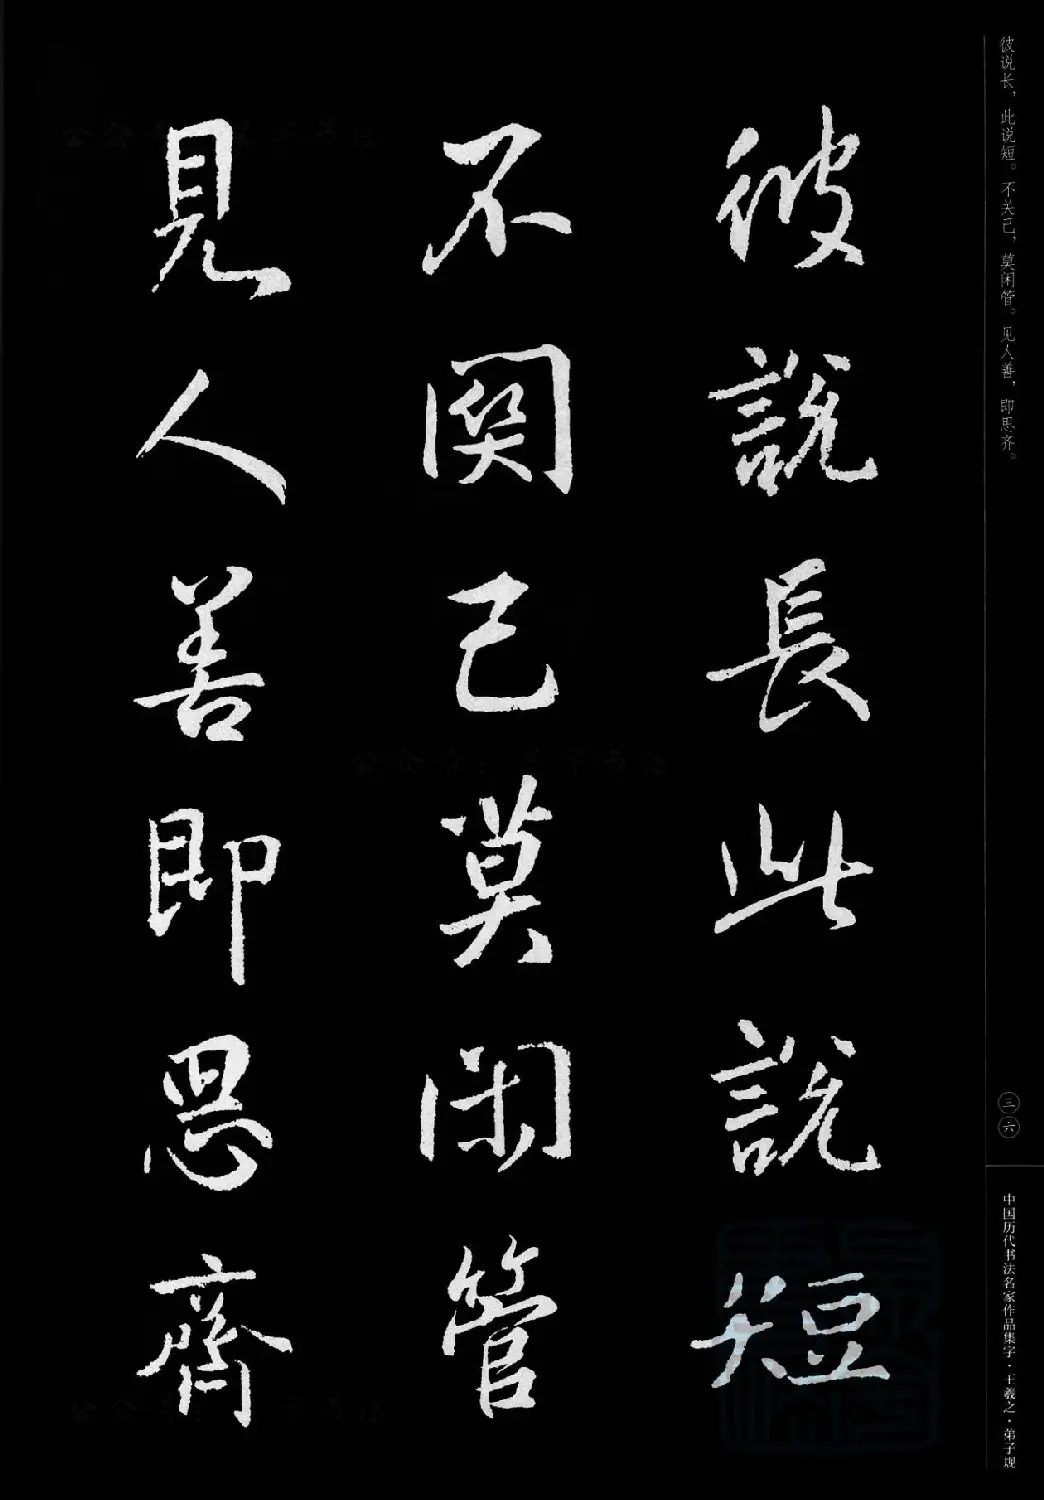 彼说长，此说短。不关己，莫闲管。见人善，即思齐。
彼說長此說短
不關己莫閑管
見人善即思齊
三六
中国历代书法名家作品集字·王羲之·弟子规